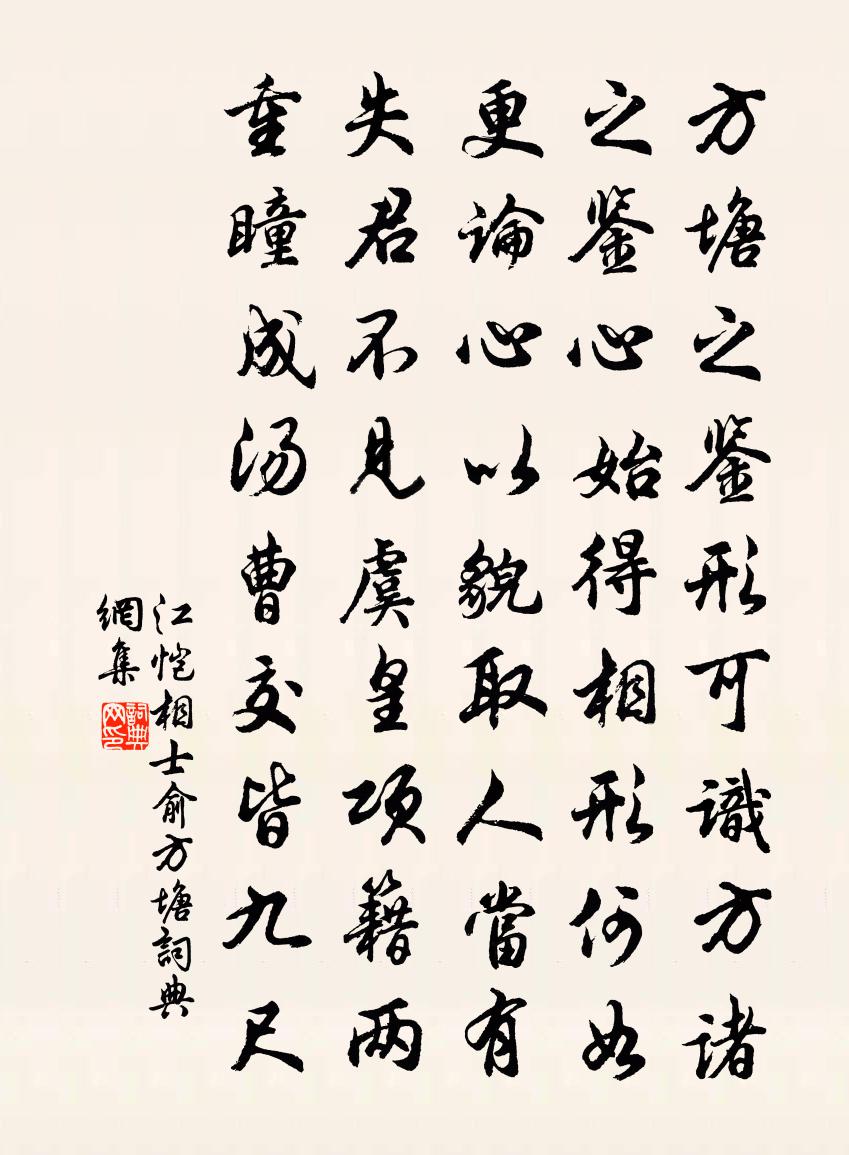 方塘之鉴形可識方諸
之鉴心始得相形何如
更論心以貌取人當有
失君不見虞皇項籍两
重瞳成汤曹交皆九尺
江恺相士俞方塘詞典
網集
詞典
网印